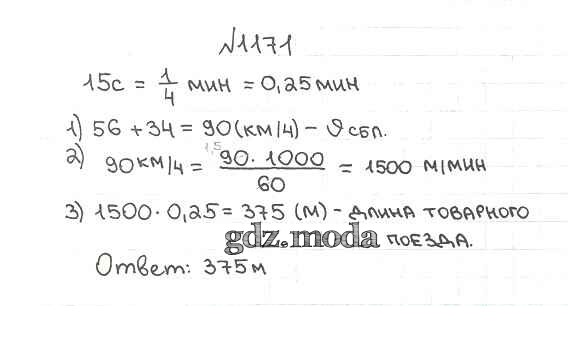 №1171
15с = 1/4 мин = 0,25 мин
1) 56 + 34 = 90 (км/ч) - ϑ сбл.
2) 90 км/ч = 90 · 1000 / 60 = 1500 м/мин
1,5
3) 1500 · 0,25 = 375 (м) - длина товарного
gdz.moda поезда.
Ответ: 375 м